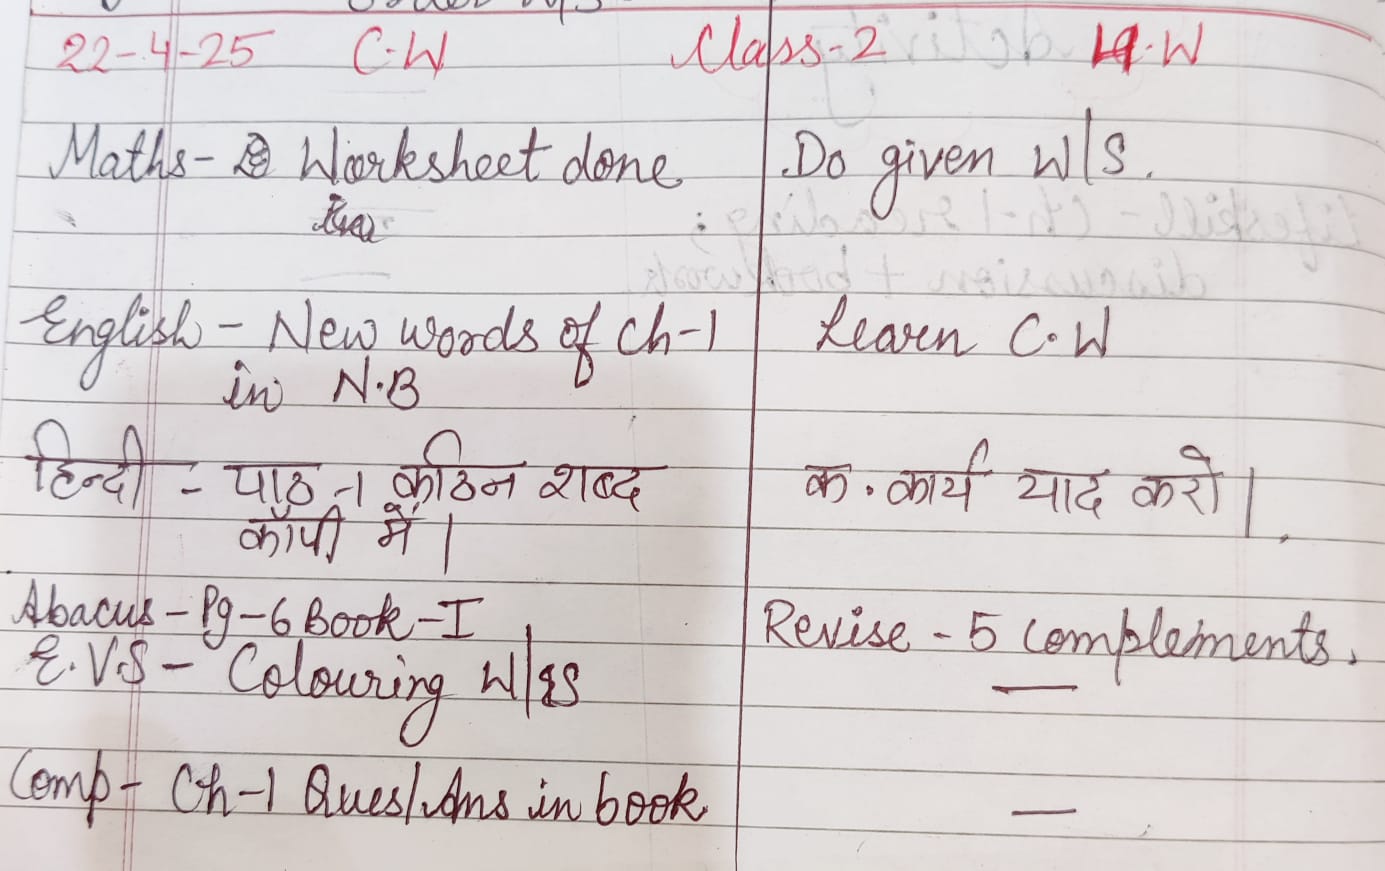 22-4-25 C.W Class-2 H.W
Maths- Worksheet done Do given W/S.
English - New words of Ch-1 Learn C.W
in N.B
हिन्दी - पाठ-1 कठिन शब्द क. कार्य याद करो।
कॉपी में।
Abacus - Pg-6 Book-I Revise - 5 complements.
E.V.S - Colouring W/S —
Comp- Ch-1 Ques/Ans in book. —